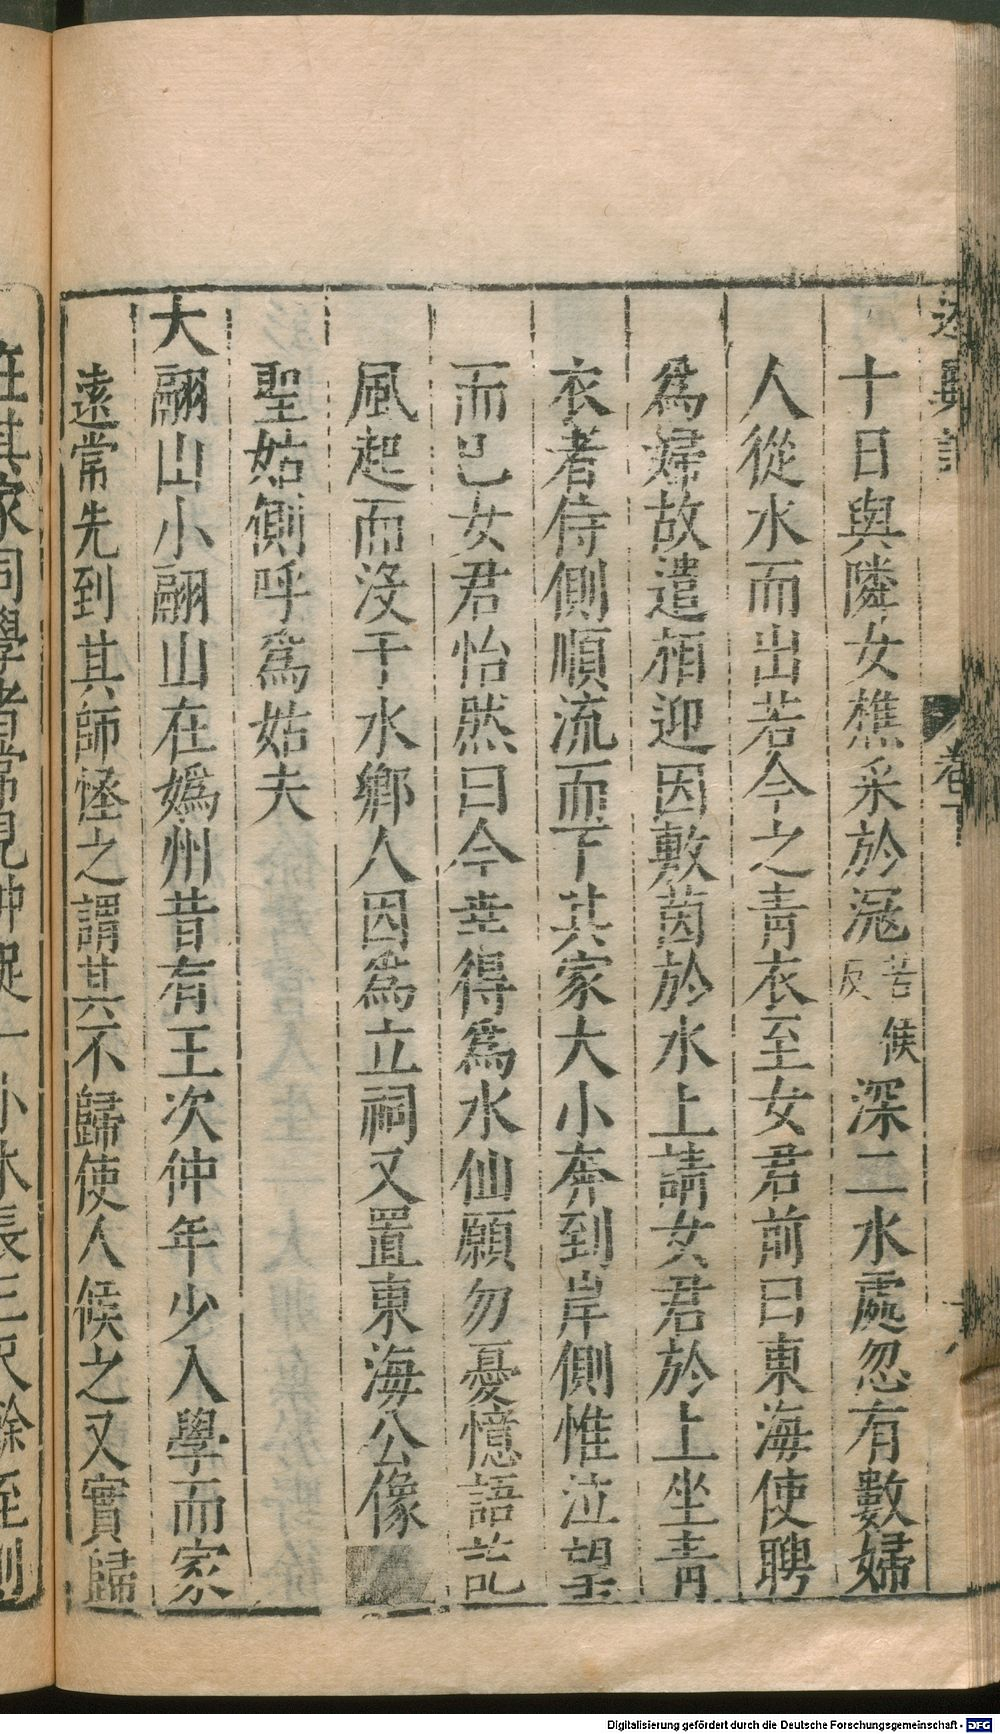 述異記 卷下
十日與隣女樵采於滱苦候反深二水處忽有數婦
人從水而出若今之青衣至女君前曰東海使聘
爲婦故遣相迎因敷茵於水上請女君於上坐青
衣者侍側順流而下其家大小奔到岸側惟泣望
而已女君怡然曰今幸得爲水仙願勿憂憶語訖
風起而沒于水鄉人因爲立祠又置東海公像
聖姑側呼爲姑夫
大翮山小翮山在嬀州昔有王次仲年少入學而家
遠常先到其師怪之謂其不歸使人候之又實歸
在其家同學者常見仲捉一小木長三尺餘至則
Digitalisierung gefördert durch die Deutsche Forschungsgemeinschaft - DFG